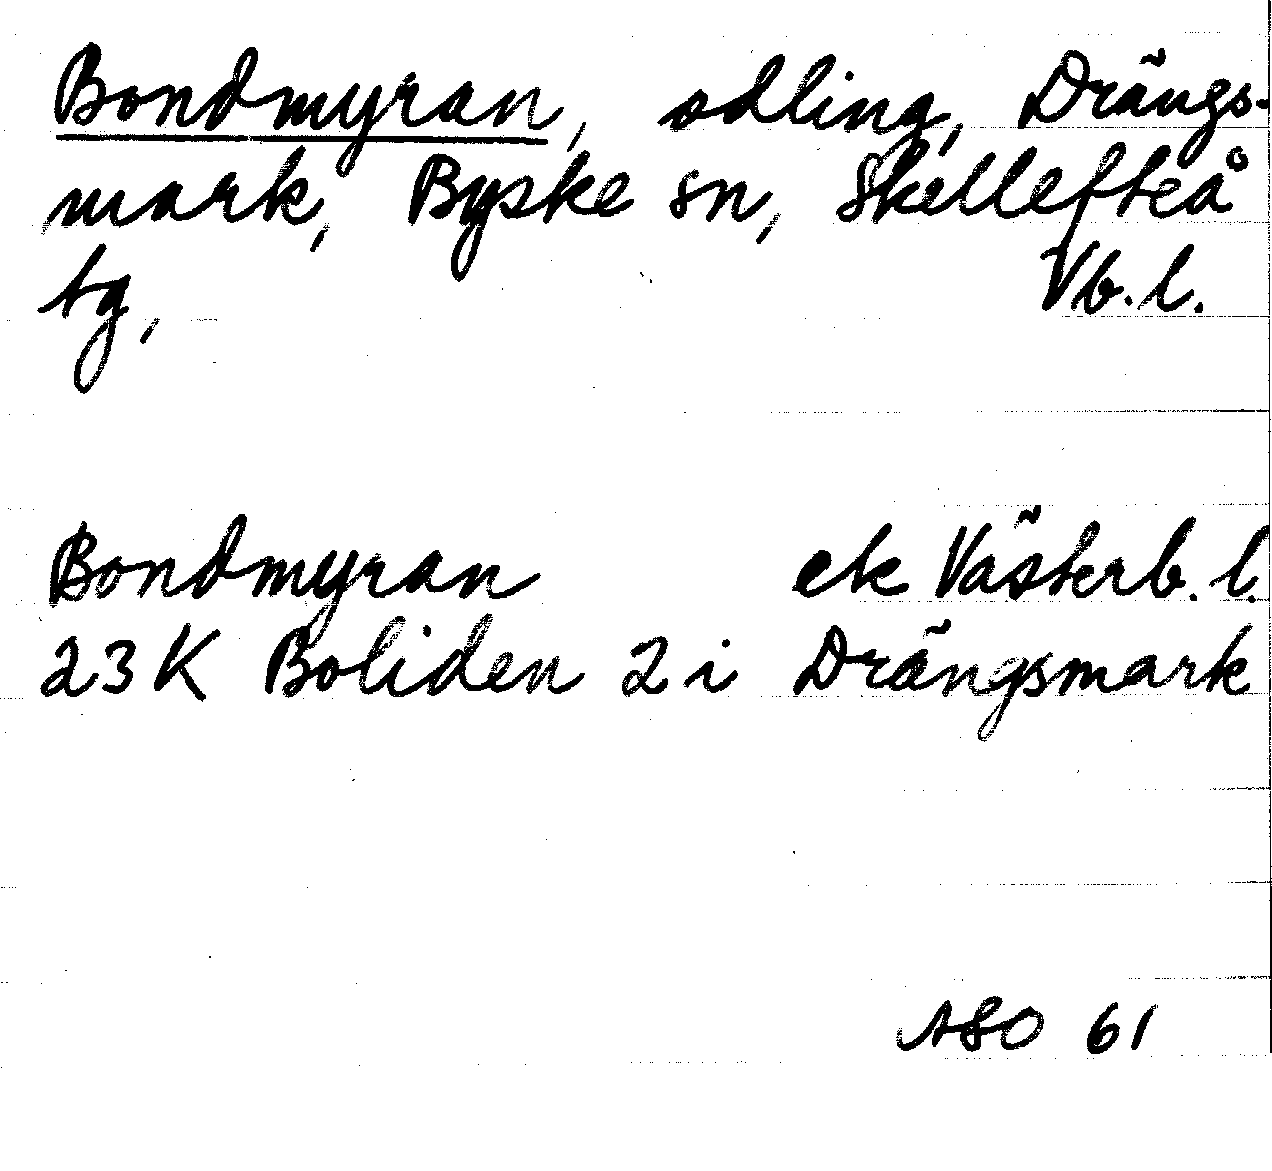 Bondmyran, odling, Drängs-
mark, Byske sn, Skellefteå
tg, Vb.l.
Bondmyran ek Västerb.l.
23K Boliden 2 i Drängsmark
ASO 61